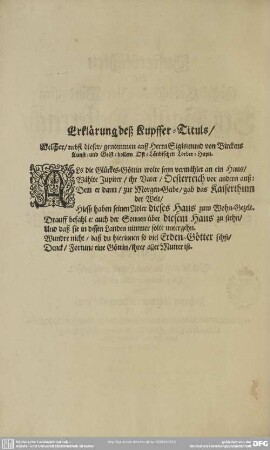 Erklärung deß Kupffer-Tituls/
Welcher/ nebst dieser/ genommen auß Herrn Sigismund von Bircken
Kunst- und Geist-vollem Ost-Ländischen Lorber-Hayn.
ALs die Glückes-Göttin wolte seyn vermählet an ein Haus/
Wählte Jupiter/ ihr Vater/ Oesterreich vor andern auß:
Dem er dann/ zur Morgen-Gabe/ gab das Kaiserthum
der Welt/
Hiess haben seinen Adler dieses Haus zum Wohn-Gezelt.
Drauff befahl er auch der Sonnen über diesem Haus zu stehn/
Und daß sie in dessen Landen nimmer solte untergehn.
Wundre nicht/ daß du hierinnen so viel Erden-Götter sihst/
Denck/ Fortun eine Göttin/ ihrer aller Mutter ist.